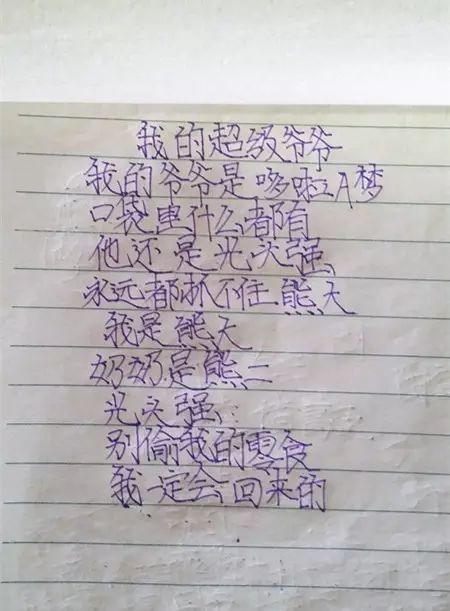 我的超级爷爷
我的爷爷是哆啦A梦
口袋里什么都有
他还是光头强
永远都抓不住熊大
我是熊大
奶奶是熊二
光头强
别偷我的零食
我一定会回来的